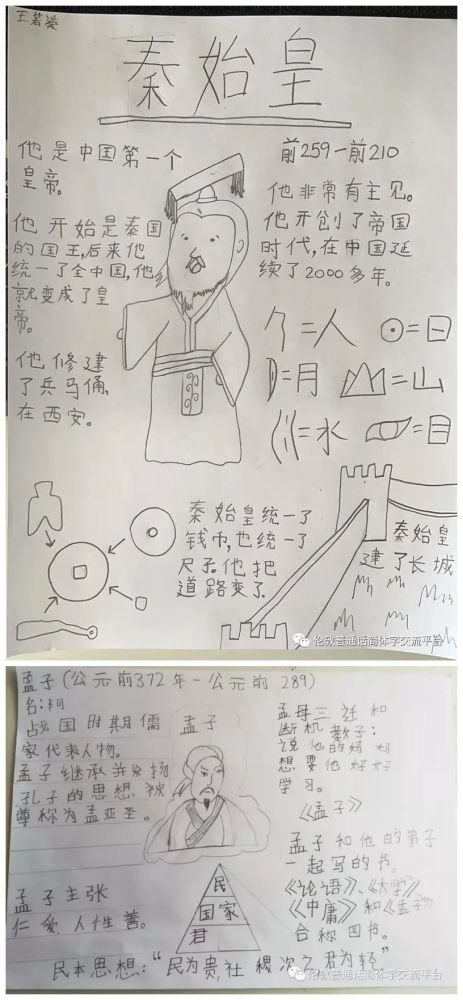 王茗瑗
秦始皇
他是中国第一个
皇帝。
他开始是秦国
的国王,后来他
统一了全中国,他
就变成了皇
帝。
他修建
了兵马俑,
在西安。
前259-前210
他非常有主见。
他开创了帝国
时代,在中国延
续了2000多年。
=人
=日
=月
=山
=水
=目
秦始皇统一了
钱币,也统一了
尺子。他把
道路变了
秦始皇
建了长城
伦敦普通话简体字交流平台
孟子(公元前372年-公元前289)
名:轲
战国时期儒
家代表人物。
孟子继承并发扬
孔子的思想,被
尊称为孟亚圣。
孟子
孟母三迁和
断机教子:
说他的妈妈
想要他好好
学习。
《孟子》
孟子和他的弟子
一起写的书。
《论语》、《大学》
《中庸》和《孟子》
合称四书。
孟子主张
仁爱,人性善。
民
国家
君
民本思想:“民为贵,社稷次之,君为轻”
伦敦普通话简体字交流平台